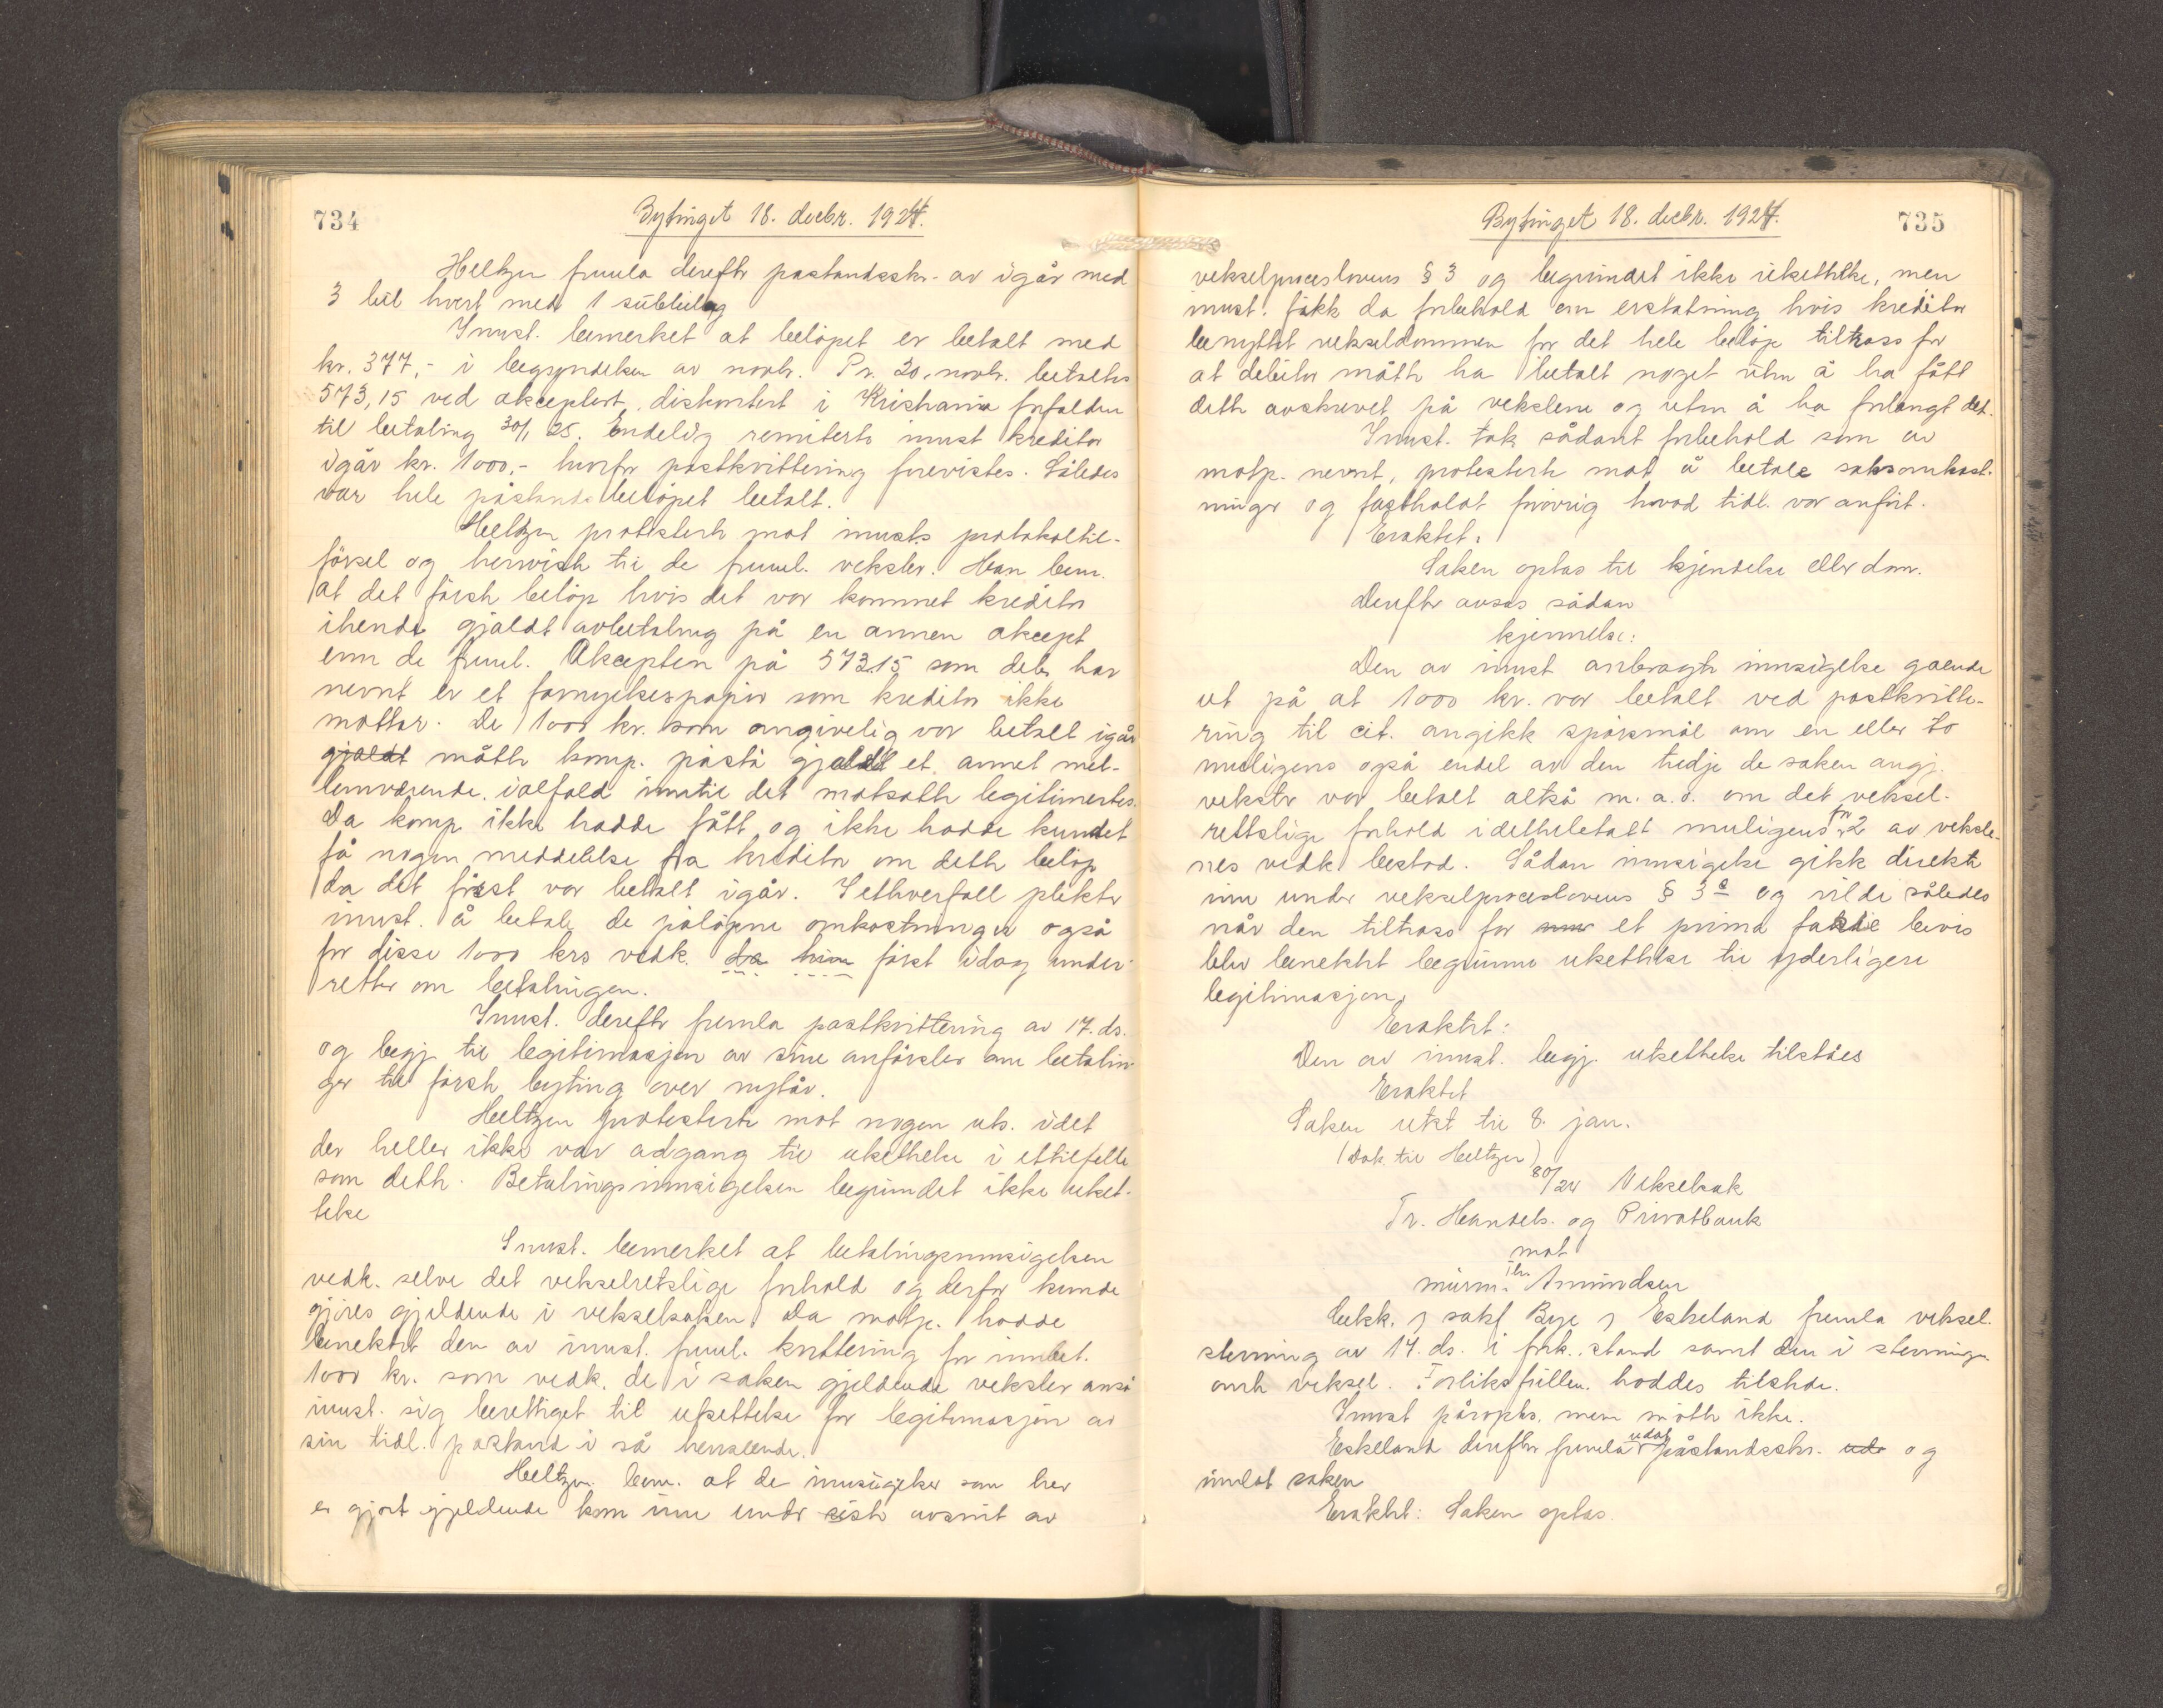 734
Bytinget 18. decbr. 1924.
Heltzen fremla derefter påstandsskr. av igår med
3 bil hvert med 1 subbilag
Innst. bemerket at beløpet er betalt med
kr. 377,- i begyndelsen av novbr. Pr. 20. novbr. betaltes
573,15 ved aksepten, diskontert i Kristiania forfalden
til betaling 30/1 25. Endelig remiterte innst kreditor
igår kr. 1000,- hvorfor postkvittering forevistes. Således
var hele påstandsbeløpet betalt.
Heltzen protesterte mot innsts protokoltil-
førsel og henviste til de freml. veksler. Han bem.
at det første beløp hvis det var kommet kreditor
ihende gjaldt avbetaling på en annen aksept
enn de freml. Aksepten på 573.15 som deb. har
nevnt er et fornyelsespapir som kreditor ikke
mottar. De 1000 kr. som angivelig var betalt igår
gjaldt måtte komp. påstå gjaldt et annet mel-
lemværende. ialfald inntil det motsatte legitimertes.
Da komp ikke hadde fått og ikke hadde kundet
få nogen meddelelse fra kreditor om dette beløp
da det først var betalt igår. I ethverfall plikter
innst. å betale de påløpne omkostninger også
for disse 1000 krs vedk. da hun først idag under-
retter om betalingen.
Innst. derefter fremla postkvittering av 17. ds.
og begj. til legitimasjon av sine anførsler om betalin-
ger til første byting over nytår.
Heltzen protesterte mot nogen uts. idet
der heller ikke var adgang til utsettelse i ettilfelle
som dette. Betalingsinnsigelsen begrundet ikke utset-
telse
Innst. bemerket at betalingsinnsigelsen
vedk. selve det vekselretslige forhold og derfor kunde
gjøres gjeldende i vekselsaken. Da motp. hadde
benektet den av innst. freml. kvittering for innbet.
1000 kr. som vedk. de i saken gjeldende veksler anså
innst. sig berettiget til utsettelse for legitimasjon av
sin tidl. påstand i så henseende.
Heltzen bem. at de innsigelser som her
er gjort gjeldende kom inn under siste avsnit av
Bytinget 18. decbr. 1924.
735
vekselproceslovens § 3 og begrundet ikke utsettelse, men
innst. fikk da forbehold om erstatning hvis kreditor
benyttet vekseldommen for det hele beløp tiltross for
at debitor måtte ha betalt noget uten å ha fått
dette avskrevet på vekslene og uten å ha forlangt det.
Innst. tok sådant forbehold som av
motp. nevnt, protesterte mot å betale saksomkost-
ninger og fastholdt forøvrig hvad tidl. var anført.
Eraktet:
Saken optas til kjendelse eller dom.
Derefter avsas sådan
kjennelse:
Den av innst anbragte innsigelse gående
ut på at 1000 kr. var betalt ved postkvitte-
ring til cit. angikk spørsmål om en eller to
muligens også endel av den tredje de saken angj.
veksler var betalt altså m.a.o. om det veksel-
rettslige forhold idethele tatt muligens for 2 av veksle-
nes vedk bestod. Sådan innsigelse gikk direkte
inn under vekselproceslovens § 3 e og vilde således
når den tiltross for et prima facie bevis
blev benektet begrunne utsettelse til yderligere
legitimasjon.
Eraktet:
Den av innst. begj. utsettelse tilstedes
Eraktet
Saken utst til 8. jan.
(Dok til Heltzen)
80/24 Vekselsak
Tr. Handels- og Privatbank
mot
murm. Th. Amundsen
Bekk. sakf Bye Eskeland fremla veksel-
stevning av 14. ds. i fork. stand samt den i stevningen
omh veksel. Forliksfullm. haddes tilstede.
Innst påroptes, men møtte ikke.
Eskeland derefter fremla udat påstandsskr. og
innlot saken
Eraktet: Saken optas.